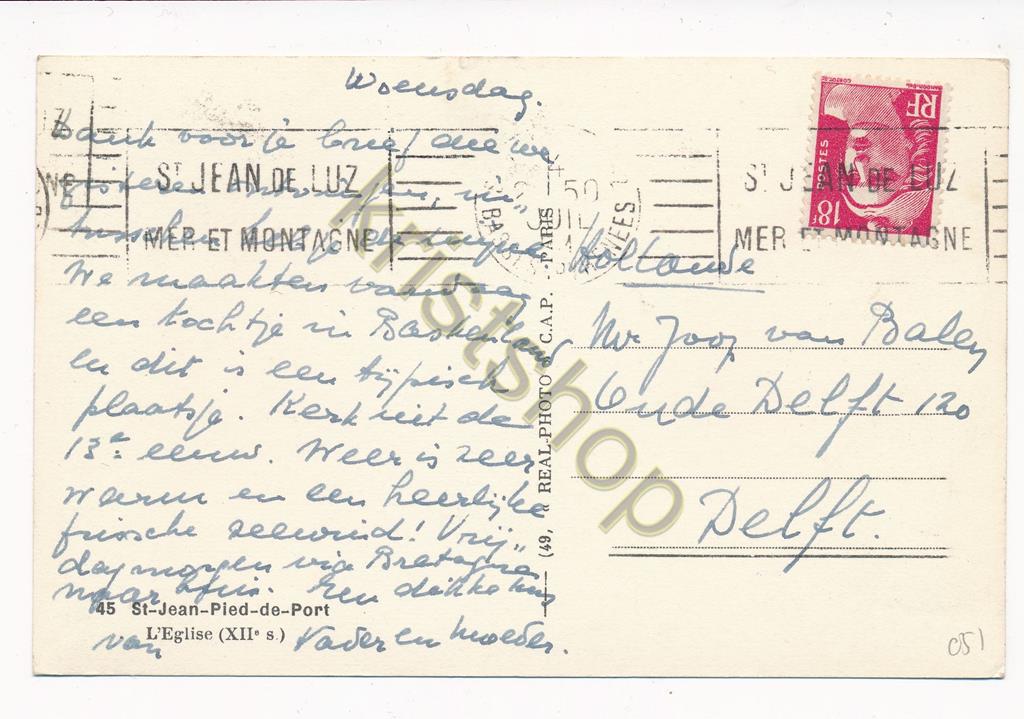 Woensdag.
Dank voor je brief die we
gisteren
tusschen
We maakten vandaag
een tochtje in Baskenland
en dit is een typisch
plaatsje. Kerk uit de
13e eeuw. Weer is zeer
warm en een heerlijke
frissche zeewind! Vrij„
dagmorgen via Bretagne
naar huis. Een dikke kus
van Vader en Moeder.
45 St-Jean-Pied-de-Port
L'Eglise (XIIe s.)
(49, REAL-PHOTO C.A.P. - PARIS
ST JEAN DE LUZ
MER ET MONTAGNE
50
JUIL
ST JEAN DE LUZ
MER ET MONTAGNE
RF
POSTES
18F
Hollande
Mr Joop van Balen
Oude Delft 120
Delft.
051
kristshop